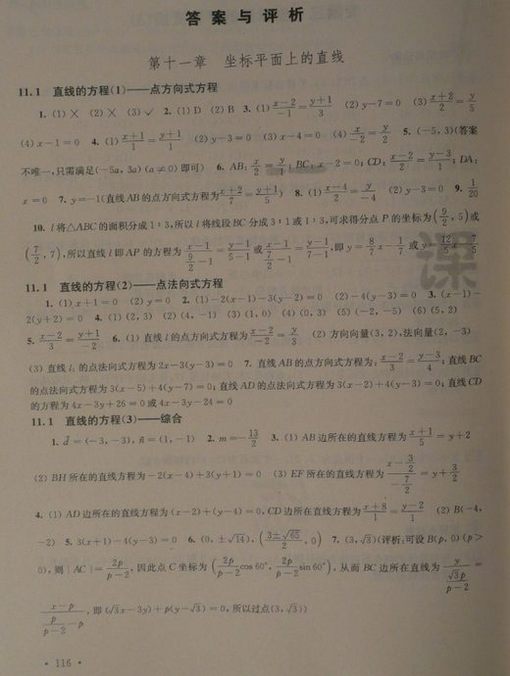 答案与评析
第十一章 坐标平面上的直线
11.1 直线的方程(1)——点方向式方程
1. (1) × (2) × (3) ✓ 2. (1) D (2) B 3. (1) (x-2)/(-1)=(y+1)/3 (2) y-7=0 (3) (x+2)/2=y/5
(4) x-1=0 4. (1) (x+1)/1=(y+1)/1 (2) y-3=0 (3) x-4=0 (4) x/2=y/2 5. (-5, 3)(答案
不唯一,只需满足(-5a, 3a) (a≠0)即可) 6. AB: x/2=y/1; BC: x-2=0; CD: (x-2)/(-2)=(y-3)/(-1); DA:
x=0 7. y=-1(直线AB的点方向式方程为(x+2)/7=(y+1)/5) 8. (1) (x-4)/2=y/(-4) (2) y-3=0 9. 1/20
10. l将△ABC的面积分成1∶3,所以l将线段BC分成3∶1或1∶3,可求得分点P的坐标为(9/2, 5)或
(7/2, 7),所以直线l即AP的方程为(x-1)/(9/2-1)=(y-1)/(5-1)或(x-1)/(7/2-1)=(y-1)/(7-1),即y=8/7 x-1/7或
11.1 直线的方程(2)——点法向式方程
1. (1) x+1=0 (2) y=0 2. (1) -2(x-1)-3(y-2)=0 (2) -4(y-3)=0 3. (x-1)-
2(y+2)=0 4. (1) (2, 3) (2) (4, -1) (3) (1, 0) (4) (0, 3) (5) (-2, -5) (6) (5, 2)
5. (x-2)/3=(y+1)/(-2) 6. (1) 直线l的点方向式方程为(x-2)/(-2)=y/3 (2) 方向向量(3, 2),法向量(2, -3)
(3) 直线l₁的点法向式方程为2x-3(y-3)=0 7. 直线AB的点方向式方程为: (x-2)/3=(y-3)/4; 直线BC
的点法向式方程为3(x-5)+4(y-7)=0; 直线AD的点法向式方程为3(x-2)+4(y-3)=0; 直线CD
的方程为4x-3y+26=0或4x-3y-24=0
11.1 直线的方程(3)——综合
1. d=(-3, -3), n=(1, -1) 2. m=-13/2 3. (1) AB边所在的直线方程为(x+1)/5=y+2
(2) BH所在的直线方程为-2(x-4)+3(y+1)=0 (3) EF所在的直线方程为(x-3/2)/(-7/2)=y+3/2
4. (1) AD边所在的直线方程为(x-2)+(y-4)=0, CD边所在直线方程为(x+8)/1=(y-2)/1 (2) B(-4,
-2) 5. 3(x+1)-4(y-3)=0 6. (0, ±√14), ((3±√65)/2, 0) 7. (3, √3)(评析:可设B(p, 0) (p>
0),则|AC|=2p/(p-2),因此点C坐标为(2p/(p-2) cos 60°, 2p/(p-2) sin 60°),从而BC边所在直线为y/(√3p/(p-2))=
(x-p)/(p/(p-2)-p),即(√3x-3y)+p(y-√3)=0,所以过点(3, √3))
· 116 ·
课